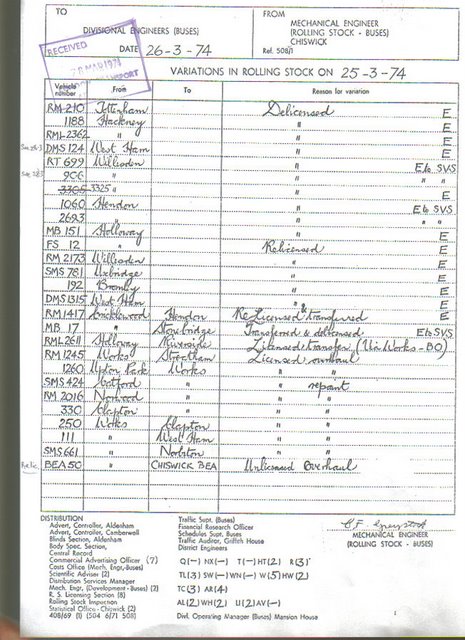 TO
DIVISIONAL ENGINEERS (BUSES)
DATE 26-3-74
FROM
MECHANICAL ENGINEER
(ROLLING STOCK - BUSES)
CHISWICK
Ref. 508/1
RECEIVED
28 MAR 1974
VARIATIONS IN ROLLING STOCK ON 25-3-74
Vehicle number From To Reason for variation
RM 210 Tottenham Delicensed E
1188 Hackney " E
RML 2362 " " E
DMS 124 West Ham " E
RT 699 Willesden " E to SVS
906 " " " "
3305 3325 " " E
1060 Hendon " E to SVS
2693 " " " "
MB 151 Holloway " E
FS 12 " Relicensed E
RM 2173 Willesden " E
SMS 781 Uxbridge " E
192 Bromley " E
DMS 1315 West Ham " E
RM 1417 Cricklewood Hendon Re Licensed & transferred E
MB 17 " Stonebridge Transferred & delicensed E to SVS
RML 2611 Holloway Riverside Licensed transfer (Via Works - BO)
RM 1245 Works Streatham Licensed overhaul
1260 Upton Park Works " "
SMS 424 Catford " " repaint
RM 2016 Norwood " " "
330 Clapton " " "
250 Works Clapton " "
111 " West Ham " "
SMS 661 " " "
BEA 50 " CHISWICK BEA Unlicensed Overhaul
DISTRIBUTION
Advert, Controller, Aldenham
Advert, Controller, Camberwell
Blinds Section, Aldenham
Body Spec. Section,
Central Record
Commercial Advertising Officer (7)
Costs Office (Mech. Engr.-Buses)
Scientific Adviser (2)
Distribution Services Manager
Mech. Engr. (Development - Buses) (2)
R. S. Licensing Section (8)
Rolling Stock Inspection
Statistical Office - Chiswick (2)
408/69 (1) (504 6/71 508)
Traffic Supt. (Buses)
Financial Research Officer
Schedules Supt. Buses
Traffic Auditor, Griffith House
District Engineers
Q(-) NX(-) T(-) HT(2) R(3)
TL(3) SW(-) WN(-) W(5) HW(2)
TC(3) AR(4)
AL(2) WH(2) U(2) AV(-)
Divl. Operating Manager (Buses) Mansion House
MECHANICAL ENGINEER
(ROLLING STOCK - BUSES)